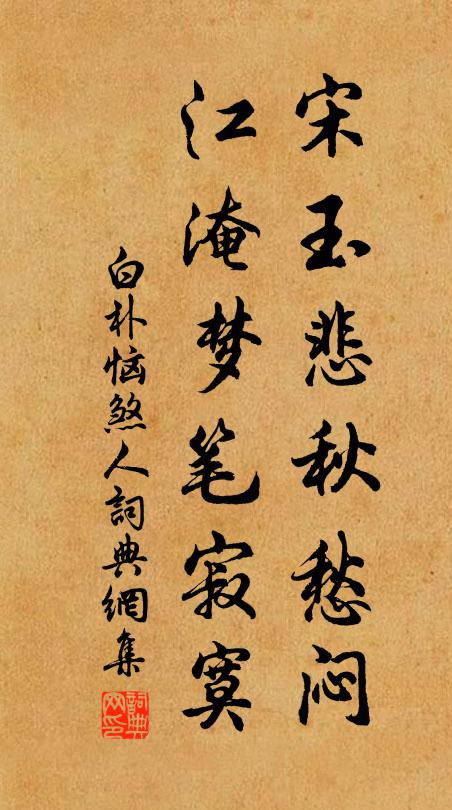 宋玉悲秋愁闷
江淹梦笔寂寞
白朴恼煞人詞典網集
詞典网印